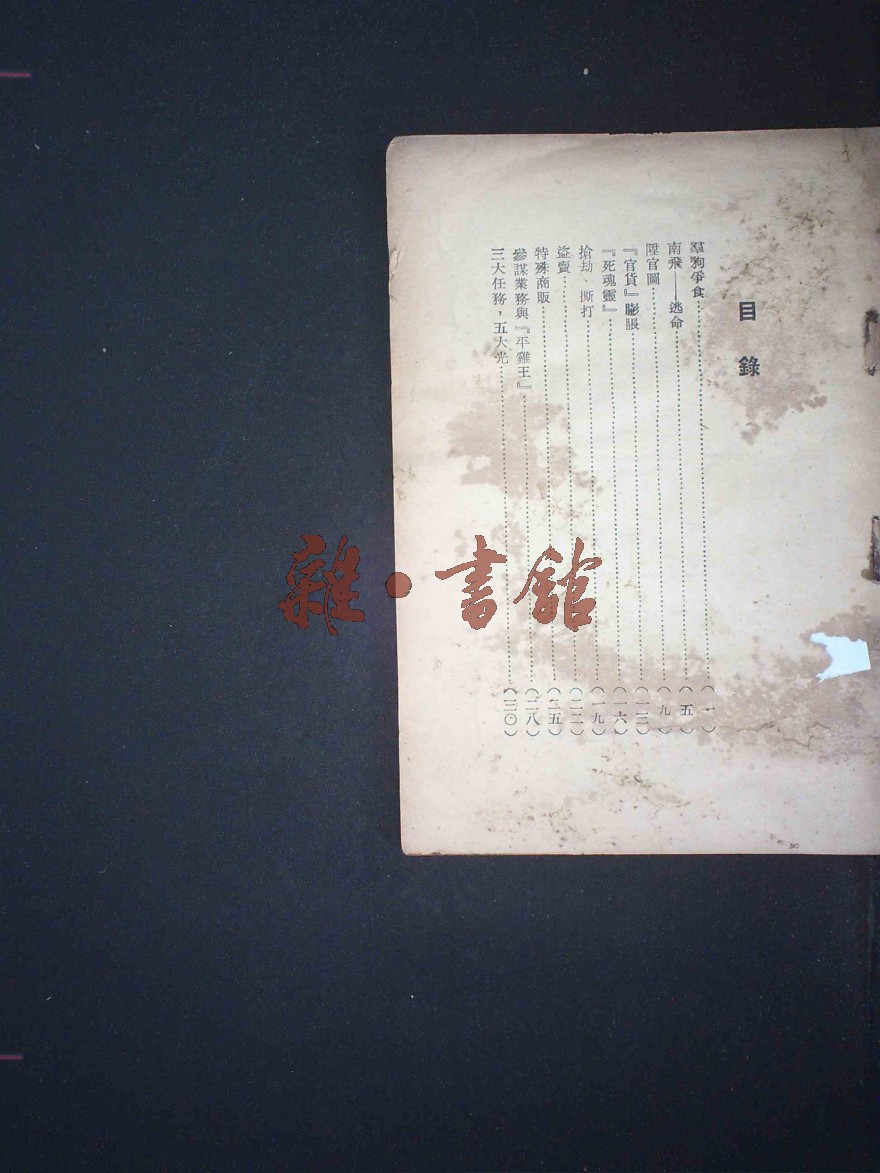 目錄
羣狗爭食……（一）
南飛——逃命……（五）
陞官圖……（九）
『官貨』膨脹……（一三）
『死魂靈』……（一六）
搶劫、撕打……（一九）
盜賣……（二二）
特殊商販……（二五）
參謀業務與『平雞王』……（二八）
三大任務，五大光……（三〇）
雜·書館